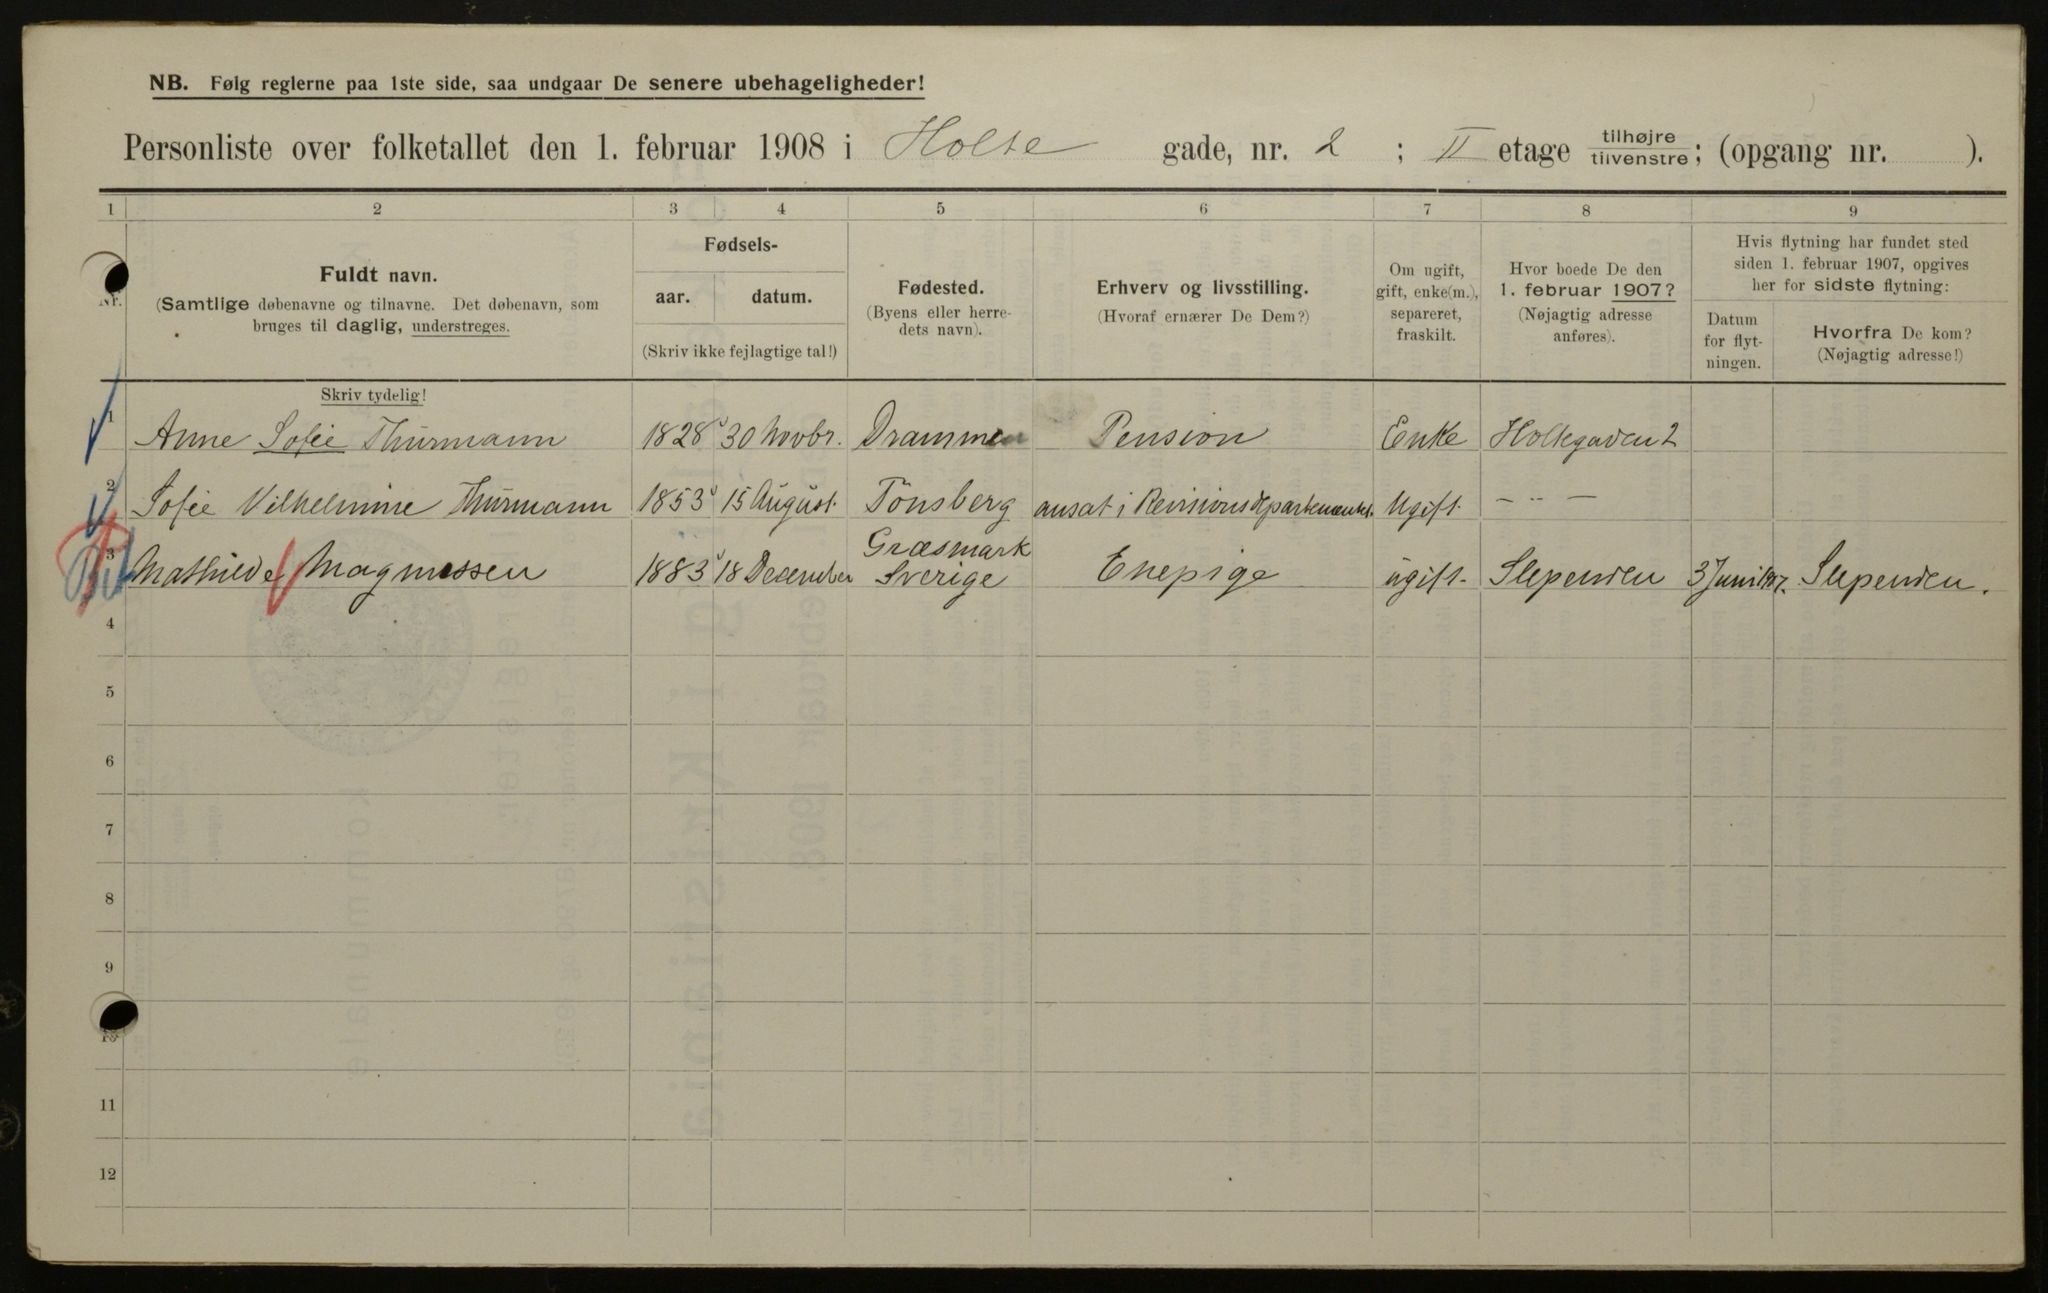 NB. Følg reglerne paa 1ste side, saa undgaar De senere ubehageligheder!
Personliste over folketallet den 1. februar 1908 i Holte gade, nr. 2 ; II etage tilhøjre tilvenstre; (opgang nr. ).
1 2 3 4 5 6 7 8 9
Nr.
Fuldt navn.
(Samtlige døbenavne og tilnavne. Det døbenavn, som
bruges til daglig, understreges.
Skriv tydelig!
Fødsels-
aar. datum.
(Skriv ikke fejlagtige tal!)
Fødested.
(Byens eller herre-
dets navn).
Erhverv og livsstilling.
(Hvoraf ernærer De Dem?)
Om ugift,
gift, enke(m.),
separeret,
fraskilt.
Hvor boede De den
1. februar 1907?
(Nøjagtig adresse
anføres).
Hvis flytning har fundet sted
siden 1. februar 1907, opgives
her for sidste flytning:
Datum
for flyt-
ningen.
Hvorfra De kom?
(Nøjagtig adresse!)
1 Anne Sofie Thurmann 1828 30 Novbr. Drammen Pension Enke Holtegaden 2
2 Sofie Vilhelmine Thurmann 1853 15 August. Tønsberg ansat i Revisionsdepartementet. Ugift. - " -
3 Mathilde Magnussen 1883 18 December Græsmark Sverige Enepige ugift. Slependen 3 Juni 1907. Slependen.
4
5
6
7
8
9
10
11
12